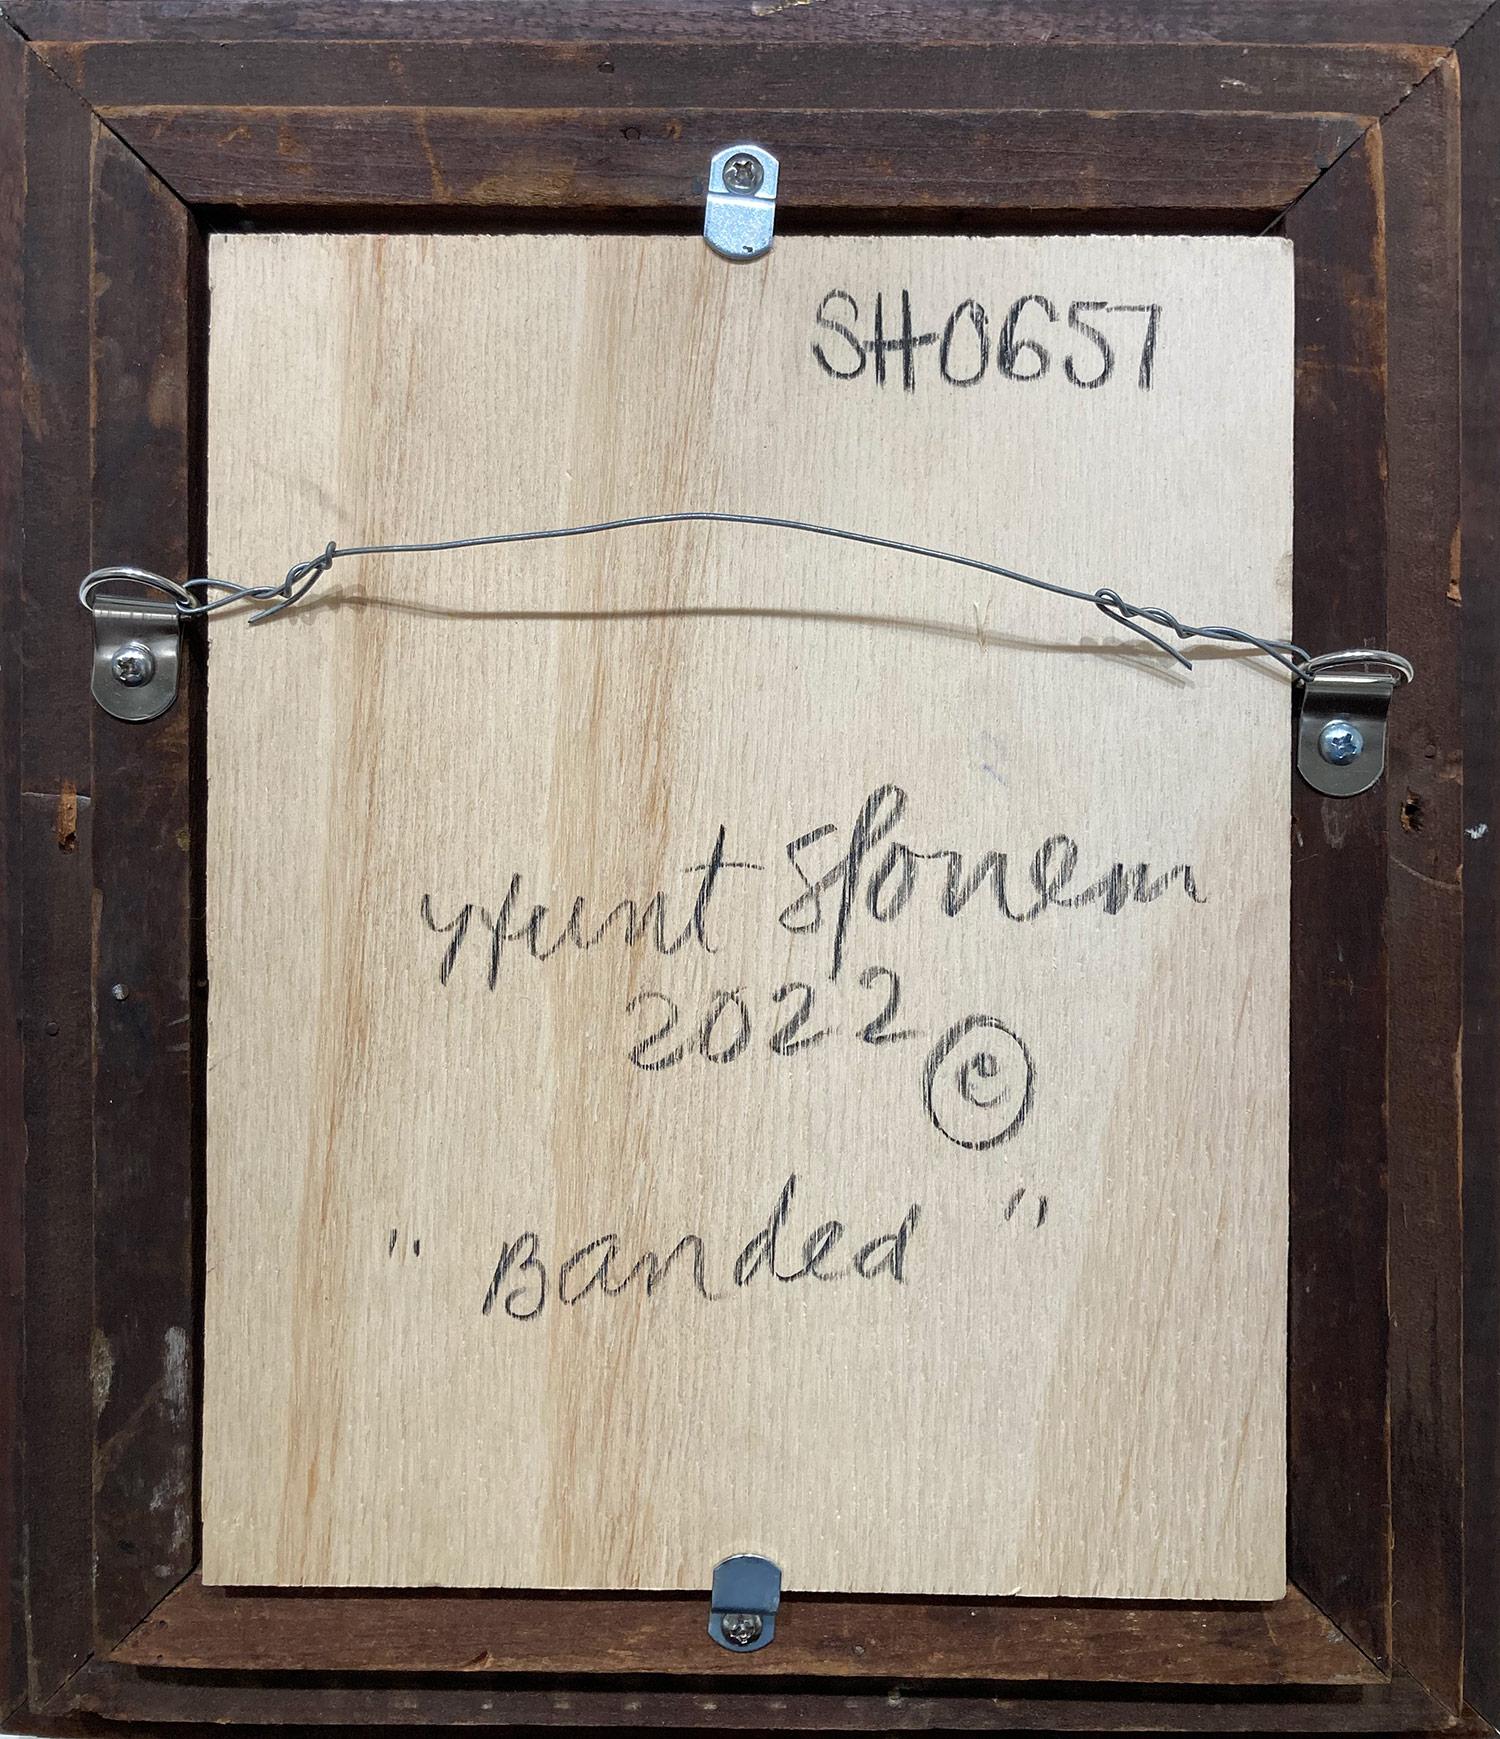 SH0657
Hunt Slonem
2022
©
" Banded "